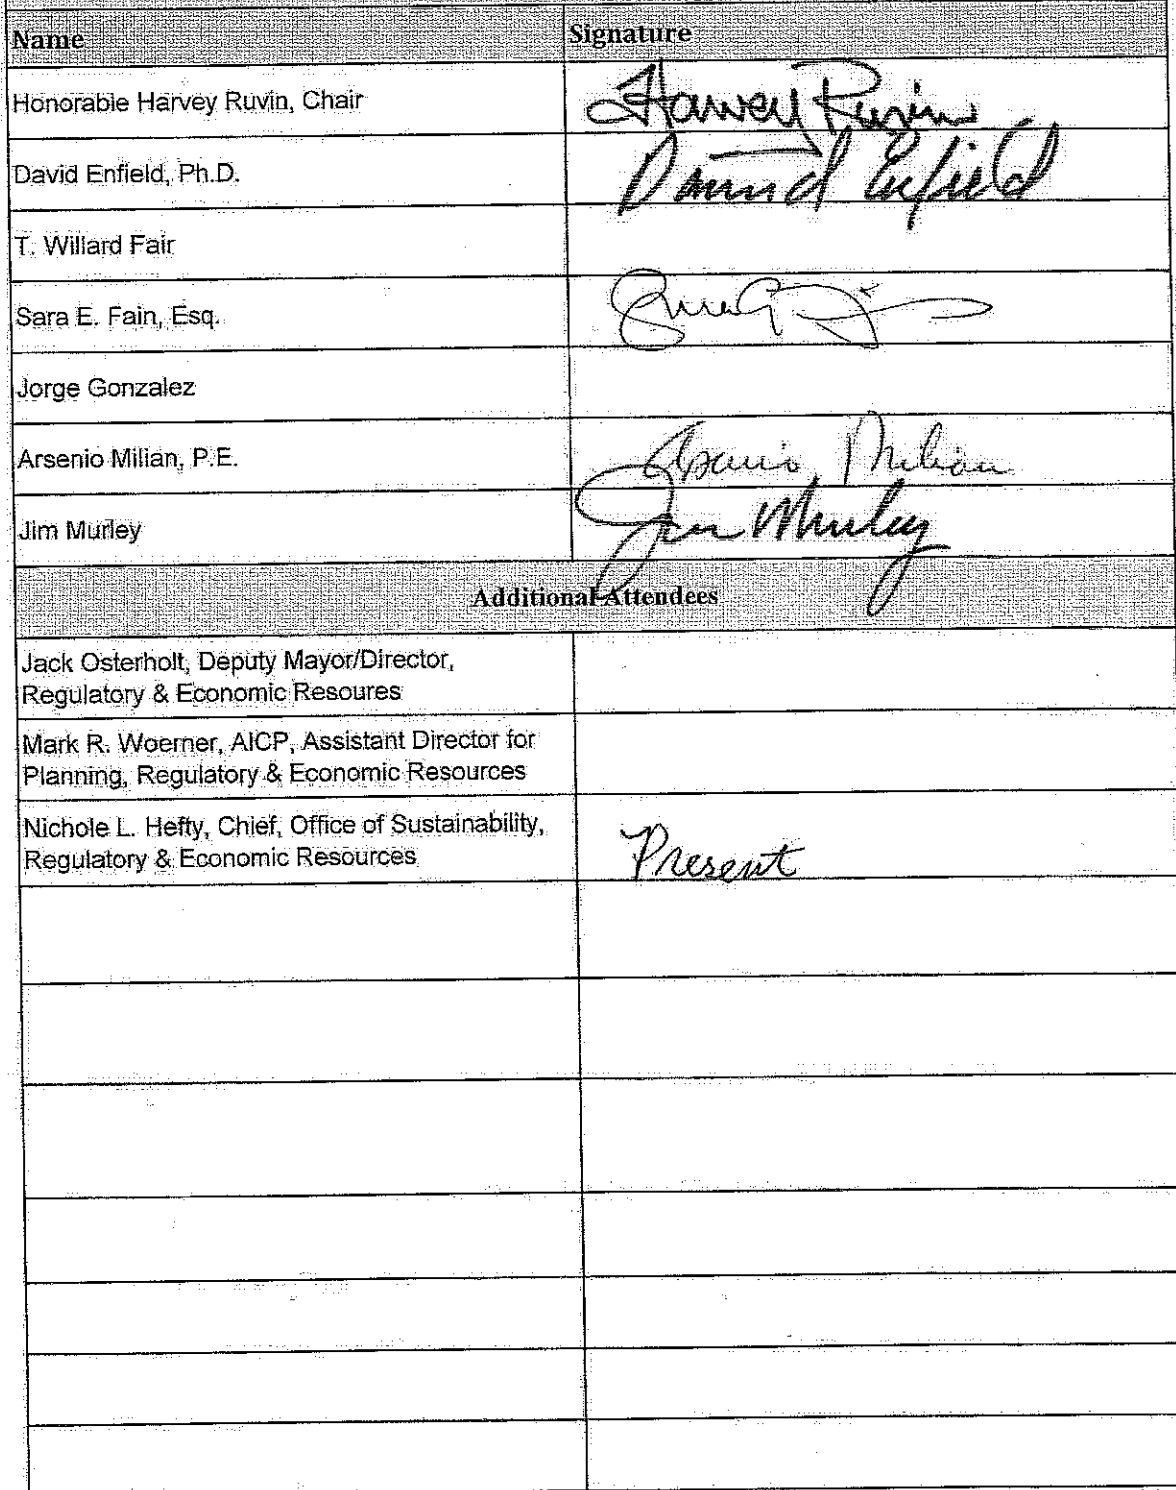 Name Signature
Honorable Harvey Ruvin, Chair Harvey Ruvin
David Enfield, Ph.D. David Enfield
T. Willard Fair
Sara E. Fain, Esq.
Jorge Gonzalez
Arsenio Milian, P.E. Arsenio Milian
Jim Murley Jim Murley
Additional Attendees
Jack Osterholt, Deputy Mayor/Director,
Regulatory & Economic Resoures
Mark R. Woerner, AICP, Assistant Director for
Planning, Regulatory & Economic Resources
Nichole L. Hefty, Chief, Office of Sustainability,
Regulatory & Economic Resources Present